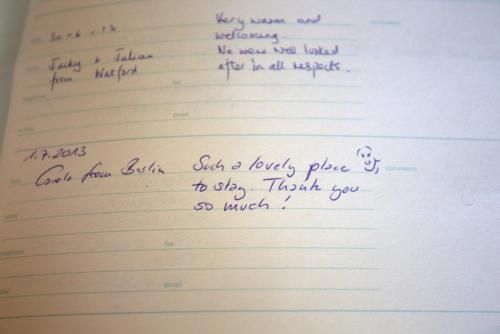 30-6-13
Jacky + Julian
from Watford
Very warm and
welcoming.
We were well looked
after in all respects.
fax
email
1.7.2013
Carola from Berlin
Such a lovely place
to stay. Thank you
so much!
comments
name
fax
email